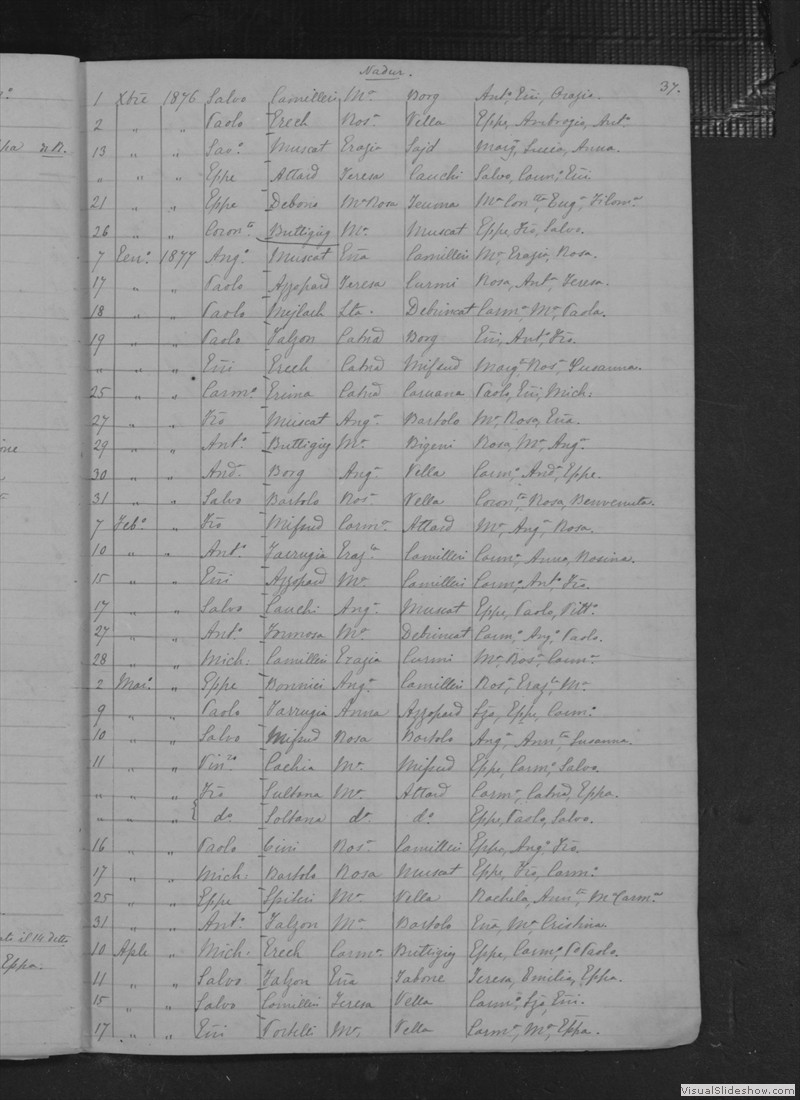 Nadur.
37.
1 Xbre 1876 Salvo Camilleri Mª Borg Antº, Eñi, Orazia.
2 " " Paolo Grech Rosª Vella Eppe, Ambrogia, Antª
13 " " Savº Muscat Grazia Sajd Margª, Lucia, Anna.
" " " Eppe Attard Teresa Cauchi Salvo, Carmª, Eñi.
21 " " Eppe Debono Mª Rosa
26 " " Coronᵗᵒ Buttigieg Mª Muscat Eppe, Frõ, Salvo.
7 Genº 1877 Angº Muscat Eña Camilleri Mª, Grazia, Rosa.
17 " " Paolo Azzopard Teresa Curmi Rosa, Antª, Teresa.
18 " " Paolo Mejlach Lta. Debrincat Carmª, Mª, Paola.
19 " " Paolo Falzon Catnã Borg Eñi, Antº, Frõ.
" " " Eñi Grech Catnã Mifsud Margª, Rosª, Susanna.
25 " " Carmº Grima Catnã Caruana Paolo, Eñi, Mich:
27 " " Frõ Muscat Angª Bartolo Mª, Rosa, Eña.
29 " " Antº Buttigieg Mª Bigeni Rosa, Mª, Angª
30 " " Andª Borg Angª Vella Carmº, Andª, Eppe.
31 " " Salvo Bartolo Rosª Vella Coronᵗᵃ, Rosa, Benvenuta.
7 Febº " Frõ Mifsud Carmª Attard Mª, Angª, Rosa.
10 " " Antº Farrugia Grazᵗᵃ Camilleri Carmª, Anna, Rosina.
15 " " Eñi Azzopard Mª Camilleri Carmº, Antº, Frõ.
17 " " Salvo Cauchi Angª Muscat Eppe, Paolo, Vittº
27 " " Antº Formosa Mª Debrincat Carmº, Angº, Paolo.
28 " " Mich: Camilleri Grazia Curmi Mª, Rosª, Carmª
2 Marº " Eppe Bonnici Angª Camilleri Rosª, Grazᵗᵃ, Mª
9 " " Paolo Farrugia Anna Azzopard Lzo, Eppe, Carmº
10 " " Salvo Mifsud Rosa Bartolo Angª, Annᵗᵃ, Susanna.
11 " " Vinᶻᵒ Cachia Mª Mifsud Eppe, Carmº, Salvo.
" " " Frõ Sultana Mª Attard Carmª, Catnã, Eppa.
" " " dº Soltana dª dº Eppe, Paolo, Salvo.
16 " " Paolo Cini Rosª Camilleri Eppe, Angº, Frõ.
17 " " Mich: Bartolo Rosa Muscat Eppe, Frõ, Carmº
25 " " Eppe Spiteri Mª Vella Rachela, Annᵗᵃ, Mª Carmª
31 " " Antº Falzon Mª Bartolo Eña, Mª, Cristina.
10 Aple " Mich: Grech Carmª Buttigieg Eppe, Carmº, P Paolo.
11 " " Salvo Falzon Eña Tabone Teresa, Emilia, Eppa.
15 " " Salvo Camilleri Teresa Vella Carmº, Lzo, Eñi.
17 " " Eñi Portelli Mª Vella Carmª, Mª, Eppa.
Eppa.
VisualSlideshow.com